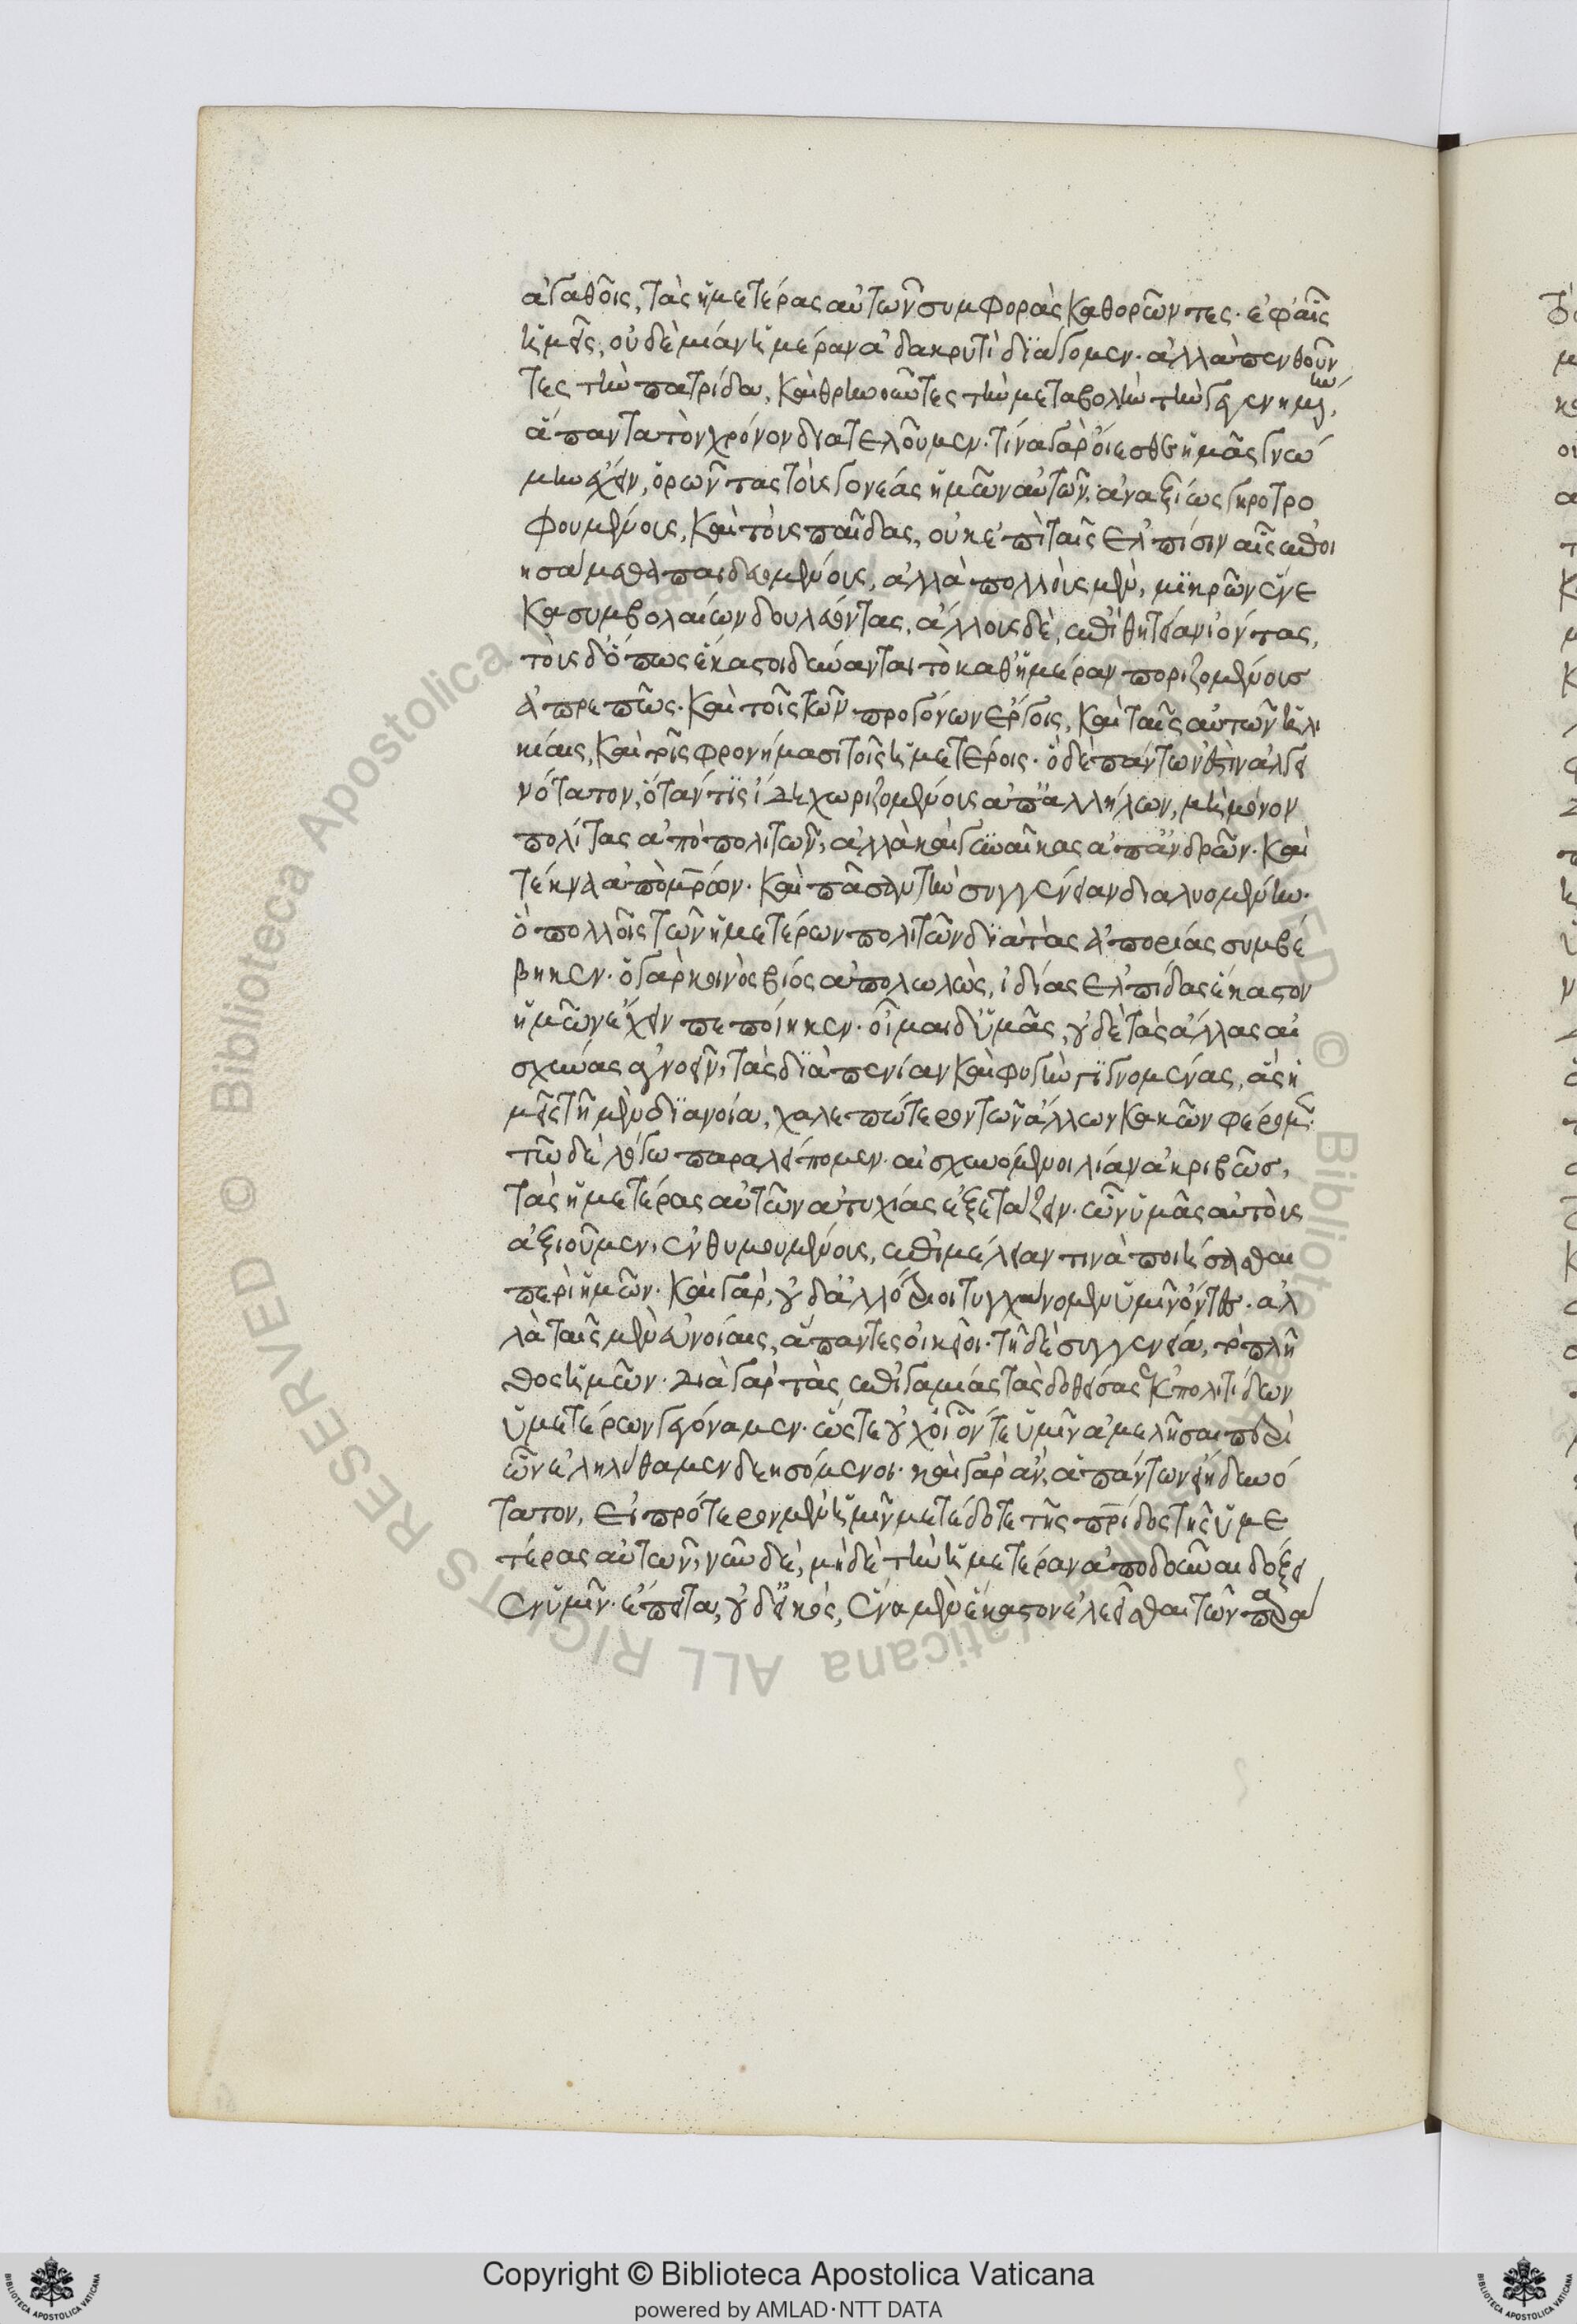 ἀγαθοῖς, τὰς ἡμετέρας αὐτῶν συμφορὰς καθορῶντες· ἐφ' αἷς
ἡμεῖς, οὐδὲ μίαν ἡμέραν ἀδακρυτὶ διάγομεν· ἀλλὰ πενθοῦν
τες τὴν πατρίδα, καὶ θρηνοῦντες τὴν μεταβολὴν τὴν γεγενημένην,
ἅπαντα τὸν χρόνον διατελοῦμεν· τίνα γὰρ οἴεσθε ἡμᾶς γνώ
μην ἔχειν, ὁρῶντας τοὺς γονέας ἡμῶν αὐτῶν, ἀναξίως γηροτρο
φουμένους, καὶ τοὺς παῖδας, οὐκ ἐπὶ ταῖς ἐλπίσιν αἷς ἐποι
ησάμεθα παιδευομένους, ἀλλὰ πολλοὺς μὲν, μικρῶν ἕνε
κα συμβολαίων δουλεύοντας, ἄλλους δὲ, ἐπὶ θητείαν ἰόντας,
τοὺς δ' ὅπως ἕκαστοι δύνανται τὸ καθ' ἡμέραν ποριζομένους
ἀπρεπῶς· καὶ τοῖς τῶν προγόνων ἔργοις, καὶ ταῖς αὐτῶν ἡλι
κίαις, καὶ τοῖς φρονήμασι τοῖς ἡμετέροις· ὃ δὲ πάντων ἐστὶν ἀλγει
νότατον, ὅταν τις ἴδῃ χωριζομένους ἀπ' ἀλλήλων, μὴ μόνον
πολίτας ἀπὸ πολιτῶν, ἀλλὰ καὶ γυναῖκας ἀπ' ἀνδρῶν· καὶ
τέκνα ἀπὸ μρων· καὶ πᾶσαν τὴν συγγένειαν διαλυομένην·
ὃ πολλοῖς τῶν ἡμετέρων πολιτῶν διὰ τὰς ἀπορίας συμβέ
βηκεν· ὁ γὰρ κοινὸς βίος ἀπολωλὼς, ἰδίας ἐλπίδας ἕκαστον
ἡμῶν ἔχειν πεποίηκεν· οἶμαι δ' ὑμᾶς, οὐδὲ τὰς ἄλλας αἰ
σχύνας ἀγνοεῖν, τὰς διὰ πενίαν καὶ φυγὴν γιγνομένας, ἃς ἡ
μεῖς τῇ μὲν διανοία, χαλεπώτερον τῶν ἄλλων κακῶν φέρομεν·
τῶ δὲ λόγω παραλείπομεν· αἰσχυνόμενοι λίαν ἀκριβῶς,
τὰς ἡμετέρας αὐτῶν ἀτυχίας ἐξετάζειν· ὧν ὑμᾶς αὐτοὺς
ἀξιοῦμεν, ἐνθυμουμένους, ἐπιμέλειαν τινὰ ποιήσασθαι
περὶ ἡμῶν· καὶ γὰρ, οὐδ' ἀλλότριοι τυγχάνομεν ὑμῖν ὄντες· ἀλ
λὰ ταῖς μὲν εὐνοίαις, ἅπαντες οἰκεῖοι· τῇ δὲ συγγενεία, τὸ πλῆ
θος ἡμῶν· διὰ γὰρ τὰς ἐπιγαμίας τὰς δοθείσας ἐκ πολιτίδων
ὑμετέρων γεγόναμεν· ὥστε οὐχ οἷόν τε ὑμῖν ἀμελῆσαι περὶ
ὧν ἐληλύθαμεν δεησόμενοι· καὶ γὰρ ἂν, ἁπάντων εἴη δεινό
τατον, εἰ πρότερον μὲν ἡμῖν μετέδοτε τῆς πρίδος τῆς ὑμε
τέρας αὐτῶν, νῦν δὲ, μηδὲ τὴν ἡμετέραν ἀποδοῦναι δόξει
εν ὑμῖν· ἔπειτα, οὐδ' εἰκὸς, ἕνα μὲν ἕκαστον ἐλεεῖσθαι τῶν παρὰ